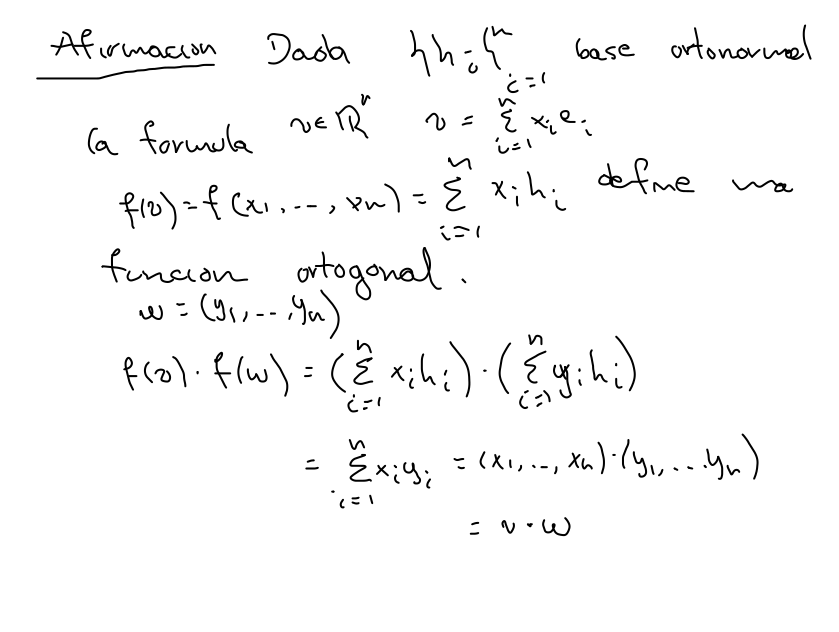 Afirmacion Dada {h_i}_{i=1}^n base ortonormal
la formula v ∈ ℝ^n v = ∑_{i=1}^n x_i e_i
f(v) = f(x_1, ..., x_n) = ∑_{i=1}^n x_i h_i define una
funcion ortogonal.
w = (y_1, ..., y_n)
f(v) · f(w) = (∑_{i=1}^n x_i h_i) · (∑_{i=1}^n y_i h_i)
= ∑_{i=1}^n x_i y_i = (x_1, ..., x_n) · (y_1, ... y_n)
= v · w